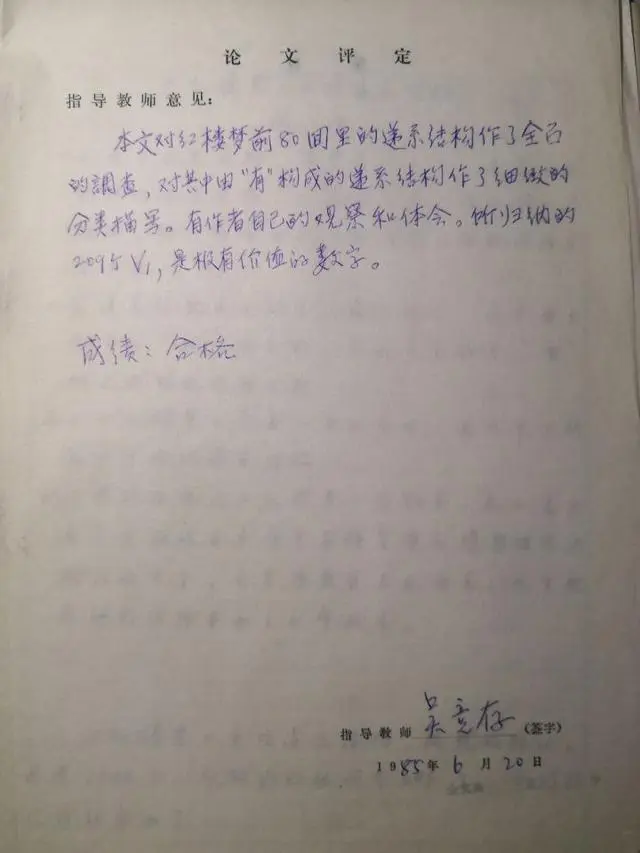 论文评定
指导教师意见：
本文对红楼梦前80回里的递系结构作了全面
的調查，对其中由"有"构成的递系结构作了细致的
分类描写。有作者自己的观察和体会。所归纳的
209个V₁，是极有价值的数字。
成绩：合格
指导教师 吴竞存 (签字)
1985年6月20日